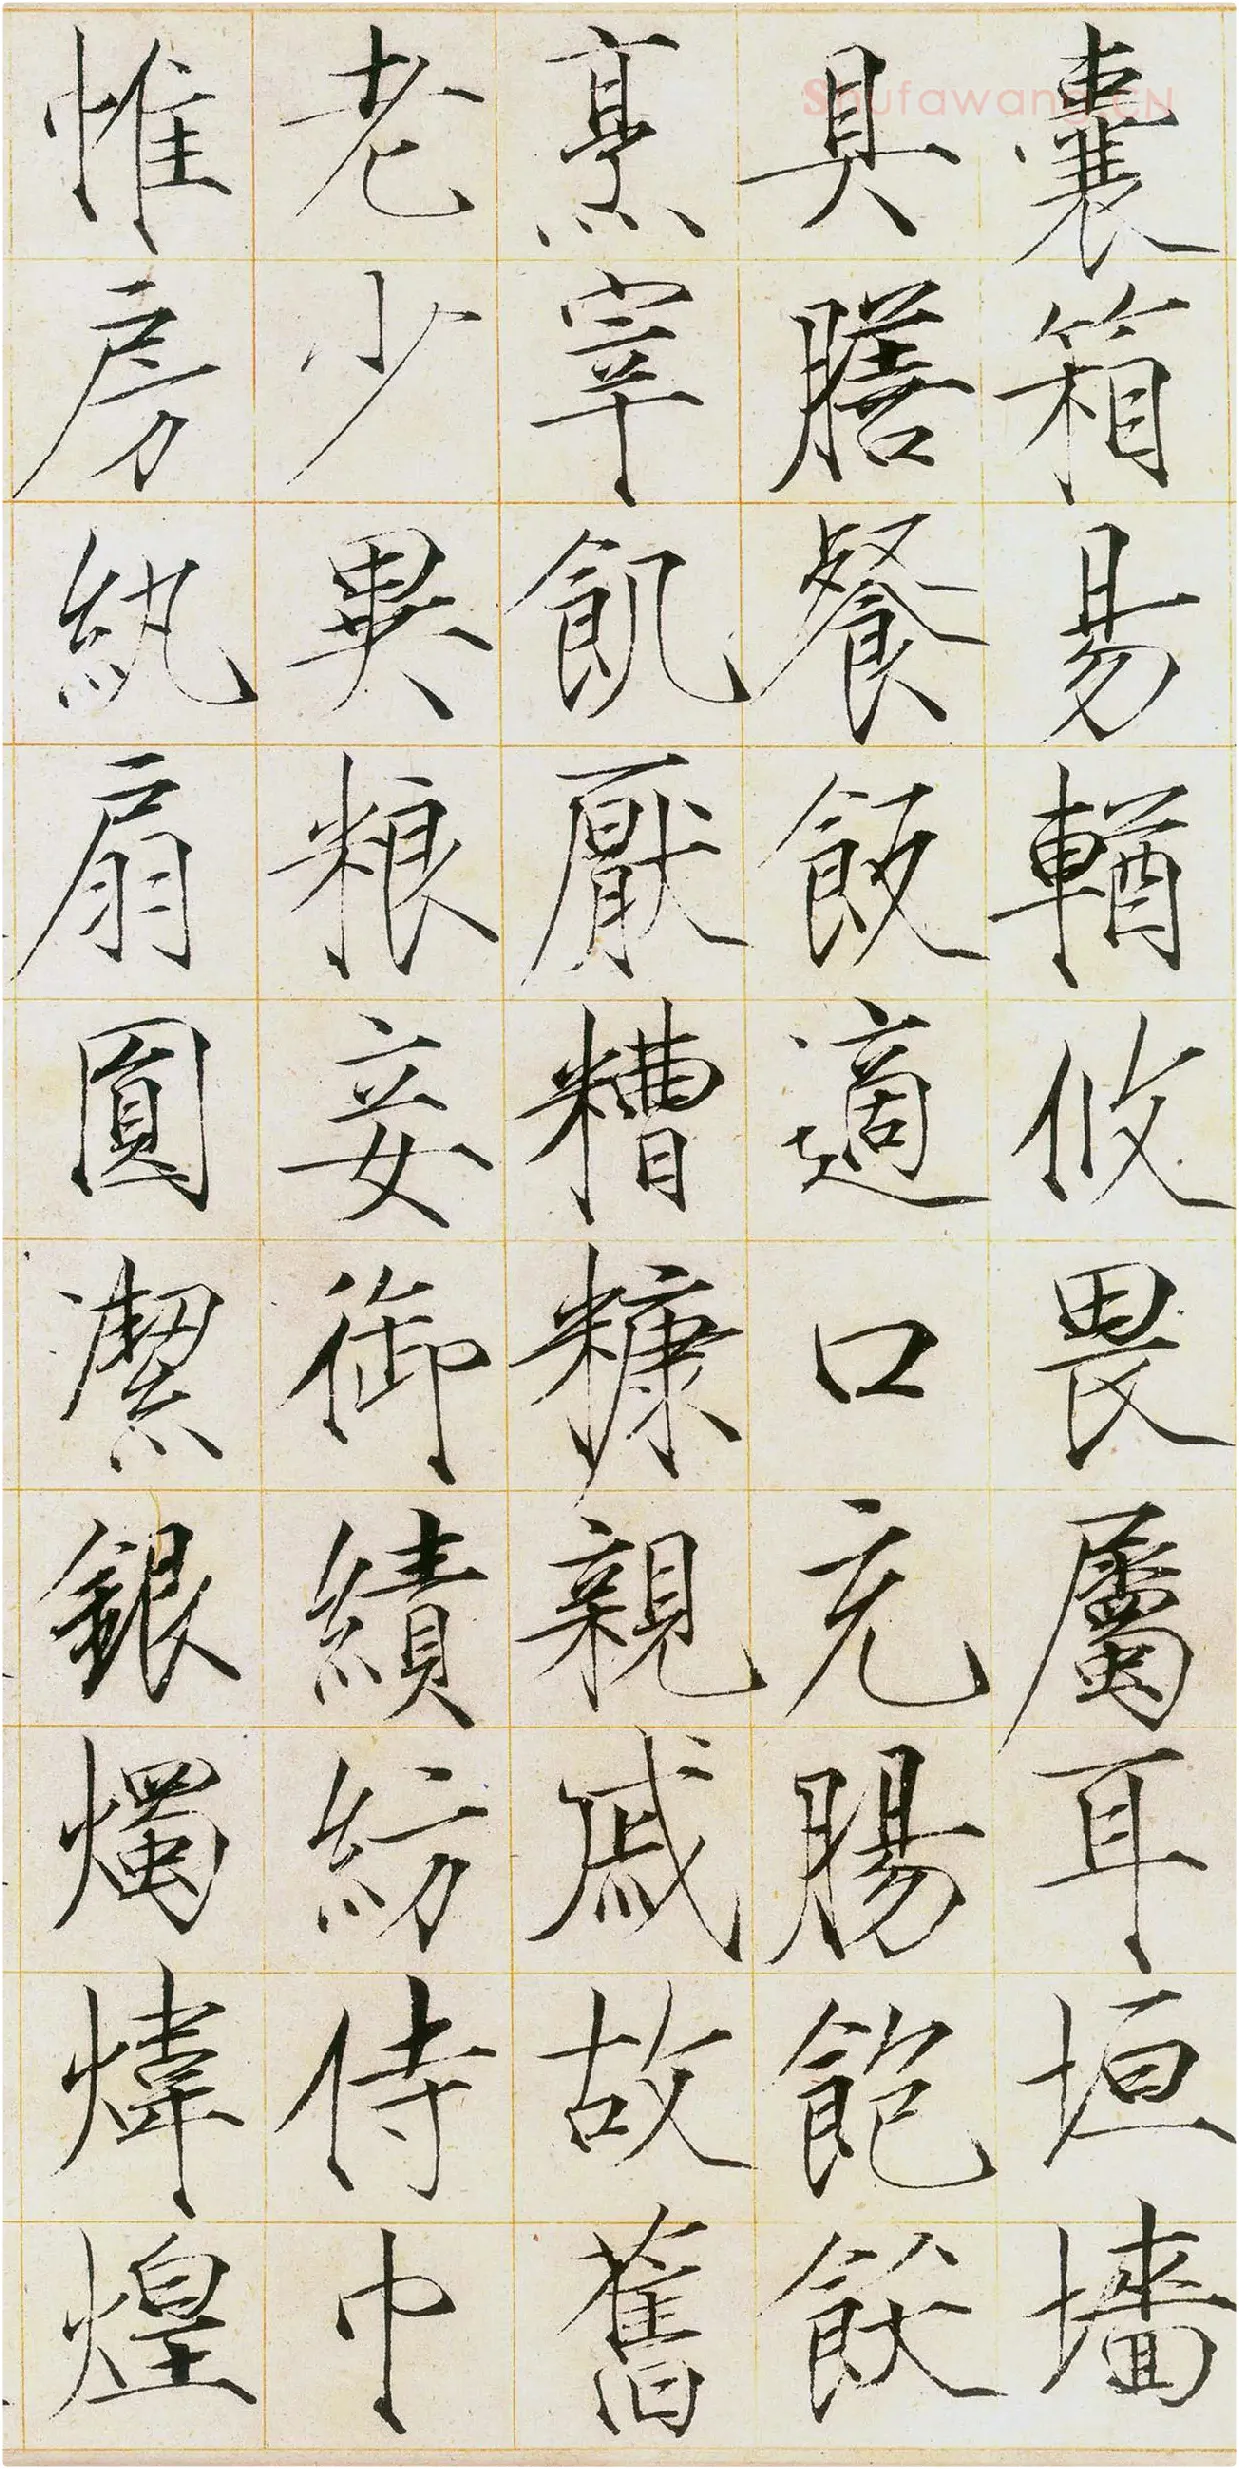 囊箱易輶攸畏屬耳垣墻
具膳餐飯適口充腸飽飫
烹宰飢厭糟糠親戚故舊
老少異粮妾御績紡侍巾
帷房紈扇圓潔銀燭煒煌
Shufawang.CN